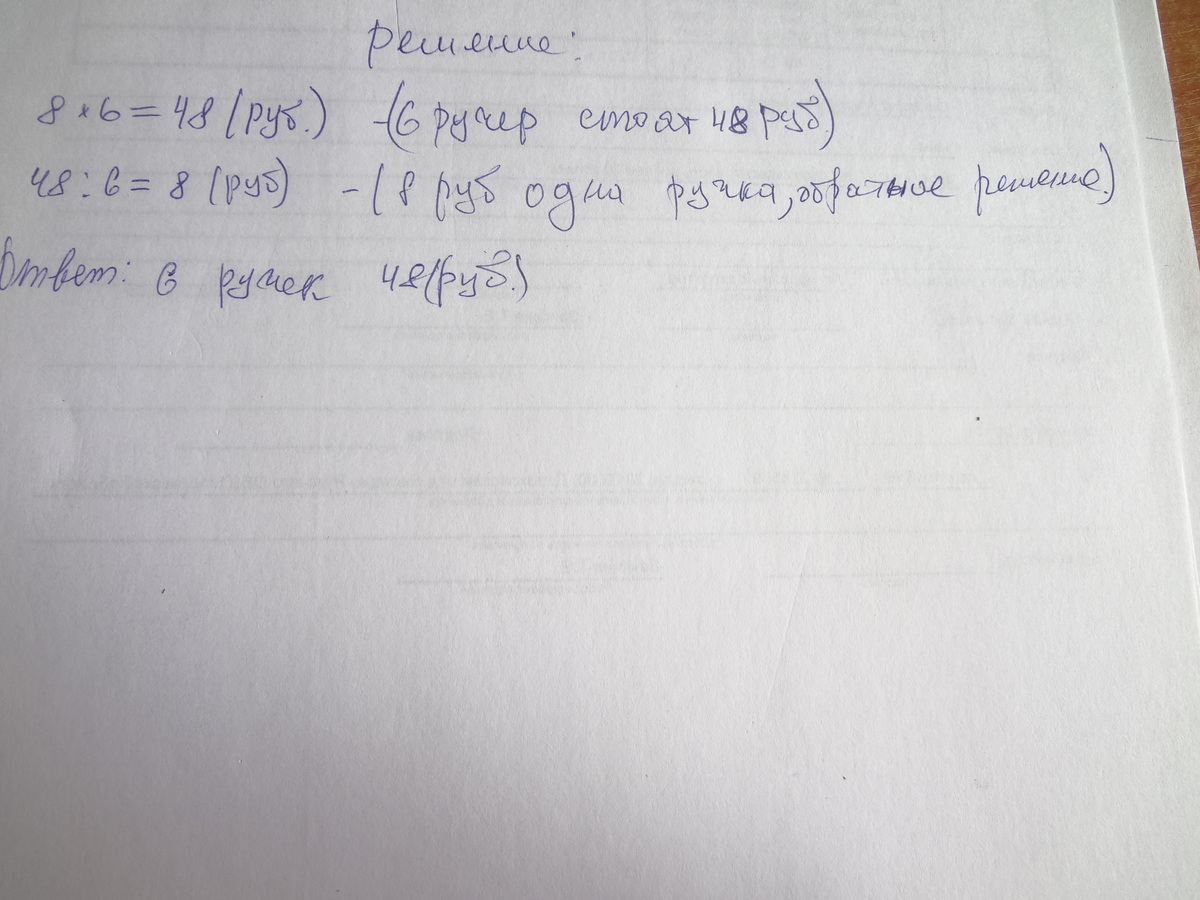 Решение:
8 × 6 = 48 (руб.) - (6 ручер стоят 48 руб)
48 : 6 = 8 (руб) - ( 8 руб одна ручка, обратное решение.)
Ответ: 6 ручек 48 (руб.)